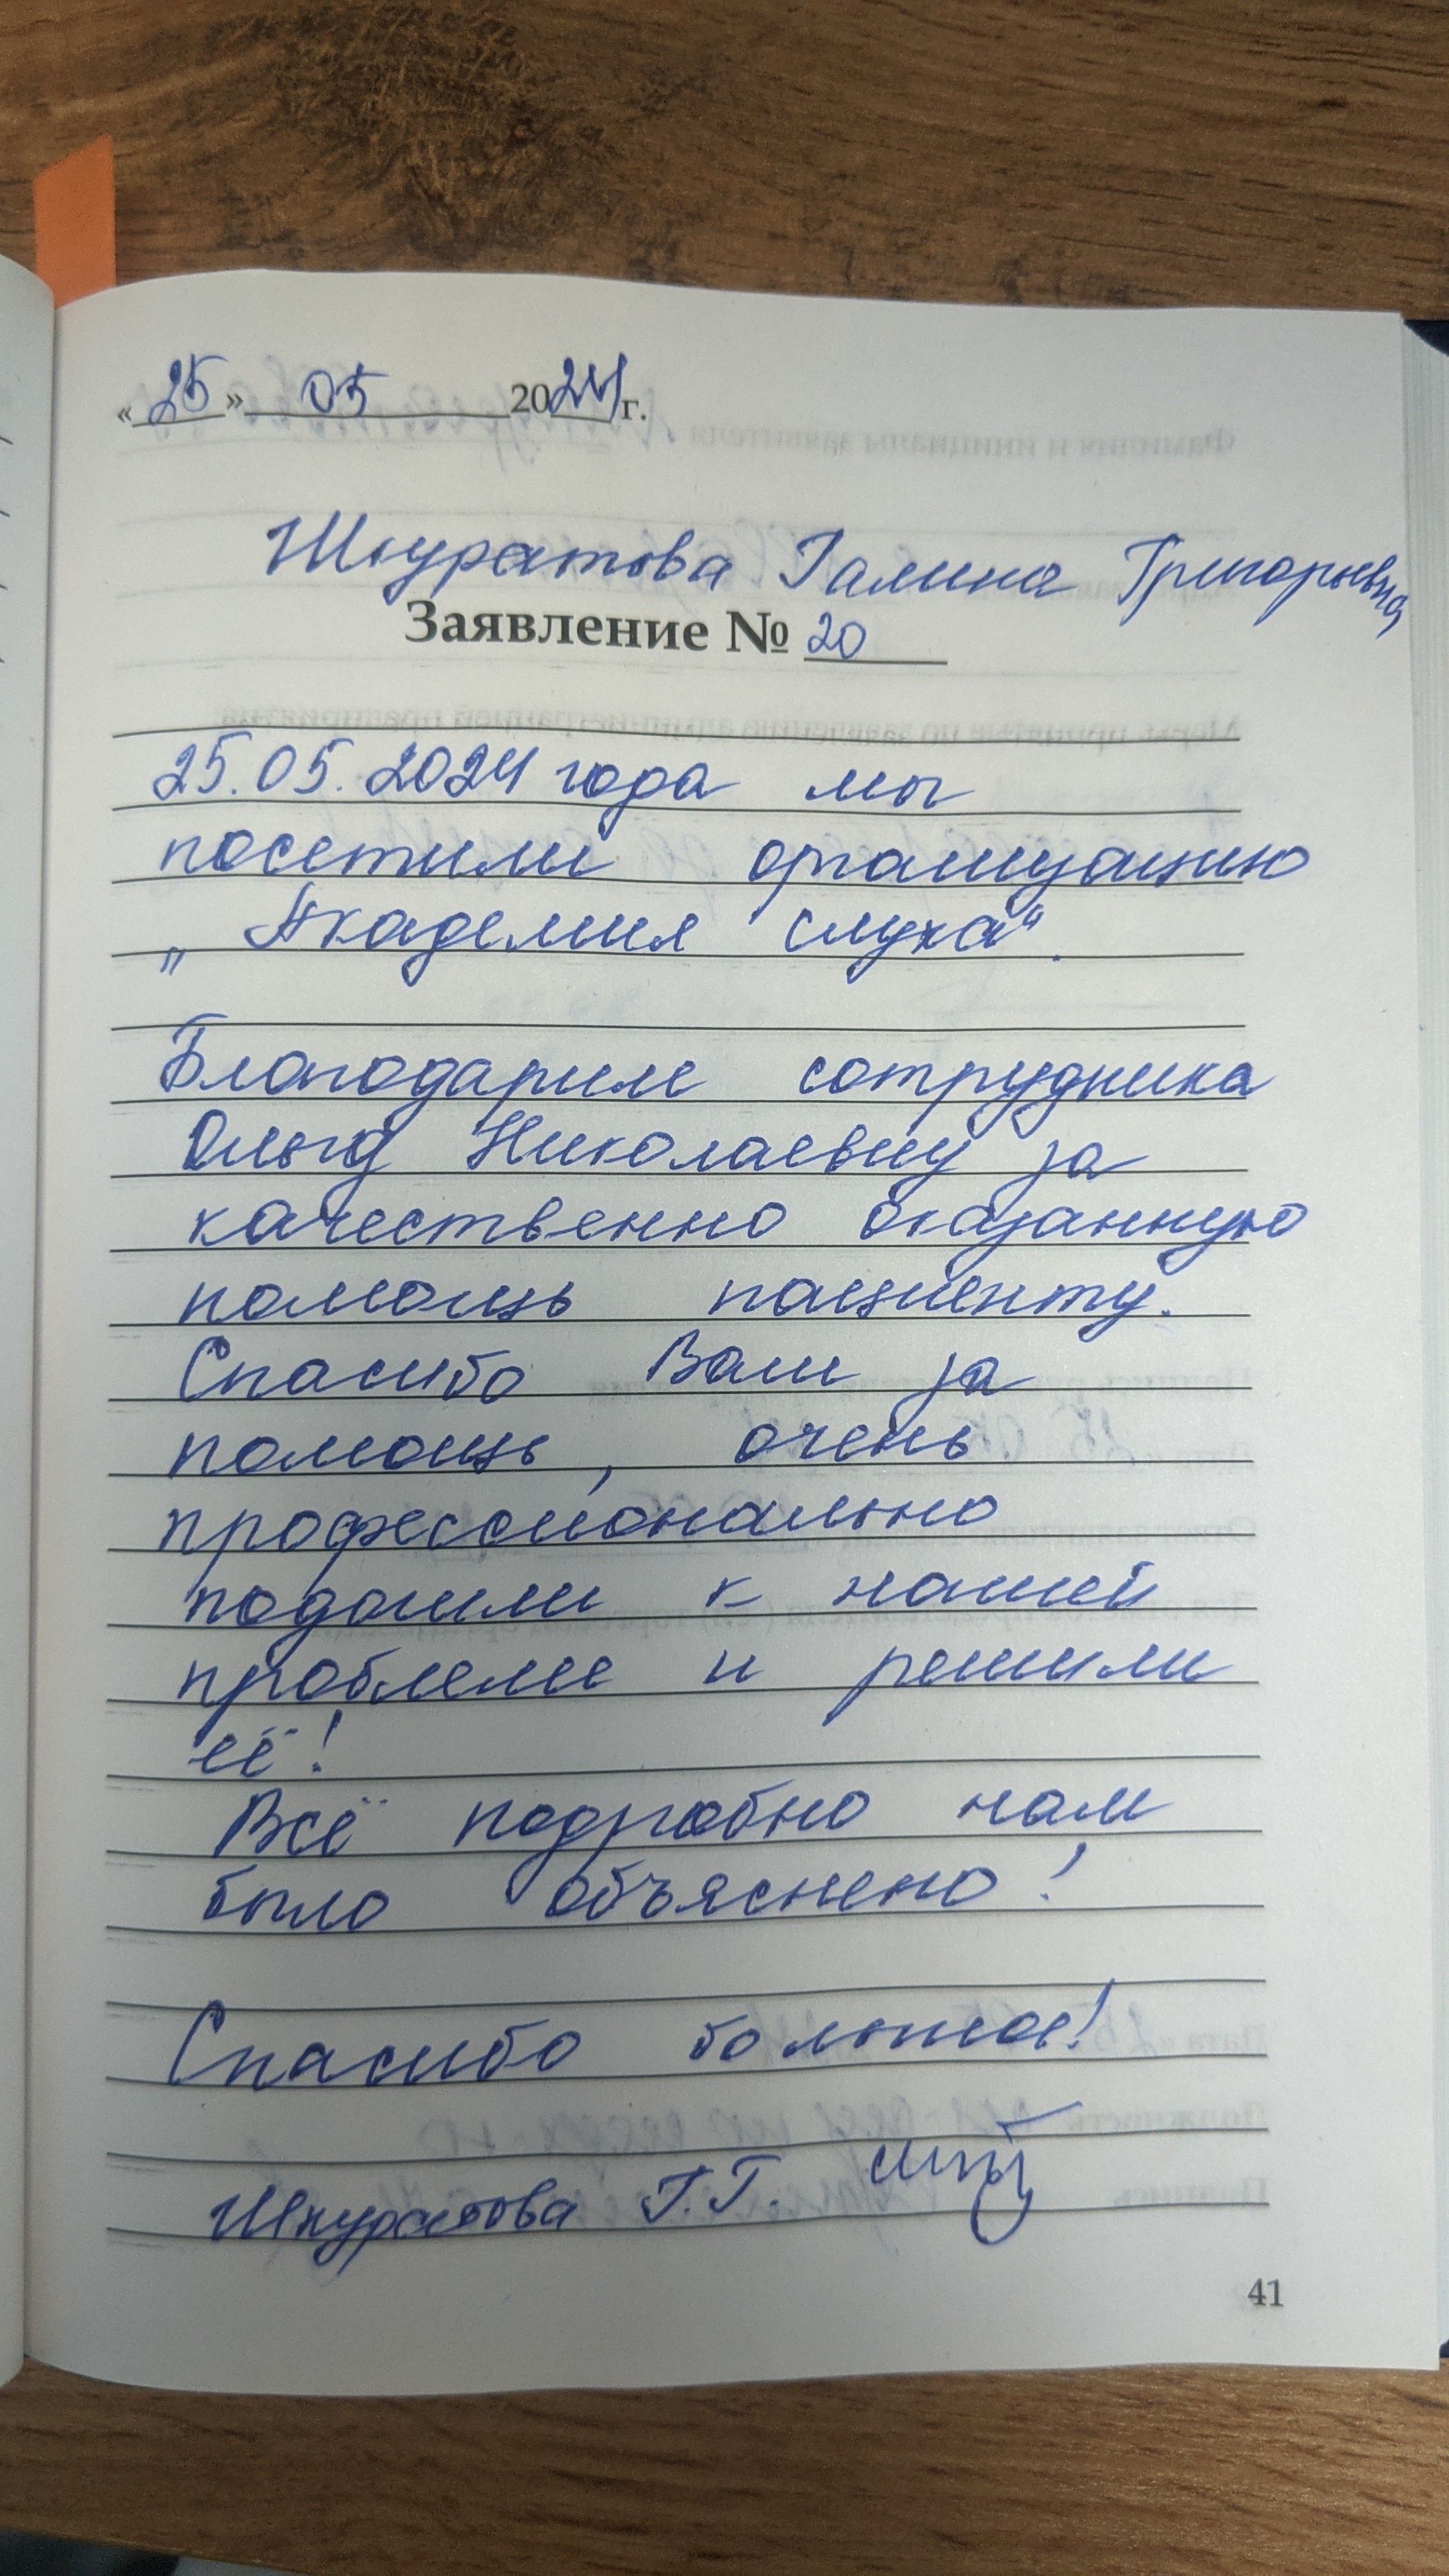 «25» 05 2024 г.
Шкуратова Галина Григорьевна
Заявление № 20
25.05.2024 года мы
посетили организацию
„Академия слуха“.
Благодарим сотрудника
Ольгу Николаевну за
качественно оказанную
помощь пациенту.
Спасибо Вам за
помощь, очень
профессионально
подошли к нашей
проблеме и решили
её!
Всё подробно нам
было объяснено!
Спасибо большое!
Шкуратова Г.Г.
41